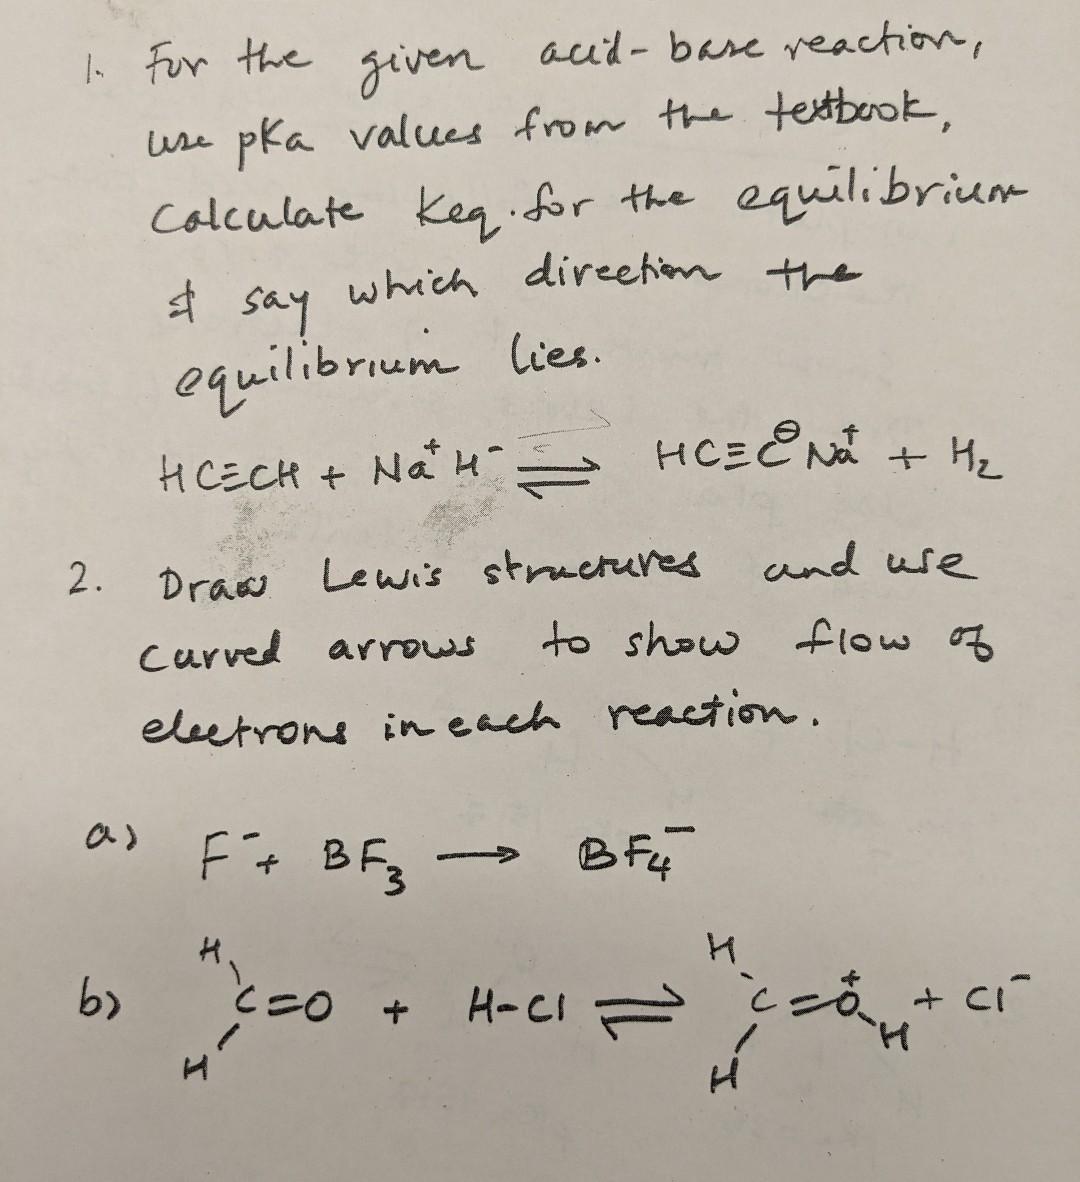 1. For the given acid-base reaction,
use pKa values from the textbook,
Calculate Keq. for the equilibrium
& say which direction the
equilibrium lies.
HC≡CH + Na⁺H⁻ ⇌ HC≡C⊖ Na⁺ + H₂
2. Draw Lewis structures and use
curved arrows to show flow of
electrons in each reaction.
a) F⁻ + BF₃ → BF₄⁻
H H
b) C=O + H-Cl ⇌ C=O⁺ + Cl⁻
H H H